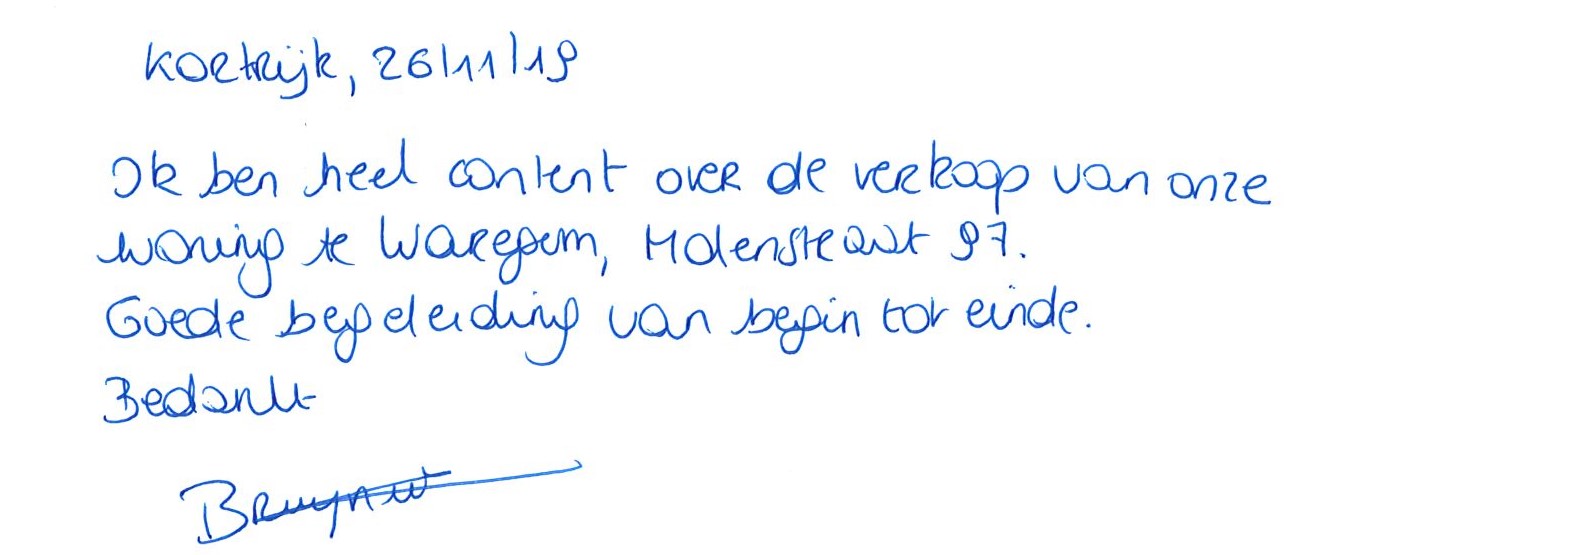 Kortrijk, 26/11/19
Ik ben heel content over de verkoop van onze
woning te Waregem, Molenstraat 97.
Goede begeleiding van begin tot einde.
Bedankt